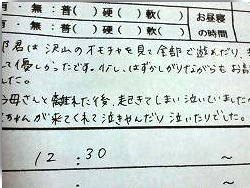 有・無:普( )硬( )軟( ) お昼寝の時間
君は沢山のオモチャを見て全部で遊んだり、
して優しかったです。少し、はずかしがりながらもお
した。
母さんと離れた後、起きてしまい泣いていました
ちゃんが来てくれて泣きやんだり泣いたりでした。
12:30 ~
: ~